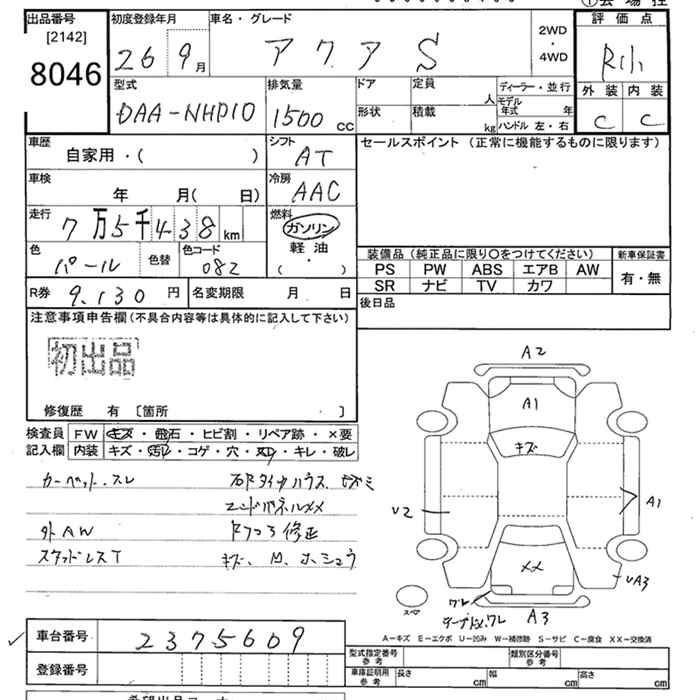 出品番号
[2142]
8046
初度登録年月
26 9月
車名・グレード
アクア S
2WD
・
4WD
評価点
外装 内装
C C
型式
DAA-NHP10
排気量
1500 CC
ドア
定員
人
形状
積載
kg
ディーラー・並行
モデル年式 年
ハンドル 左・右
車歴
自家用・( )
シフト
AT
セールスポイント (正常に機能するものに限ります)
車検
年 月( 日)
冷房
AAC
走行
7万5千438km
燃料
ガソリン
軽油
( ・ )
色
パール
色替
色コード
082
装備品 (純正品に限り○をつけてください)
新車保証書
PS PW ABS エアB AW
有・無
SR ナビ TV カワ
R券 9,130円
名変期限 月 日
後日品
注意事項申告欄(不具合内容等は具体的に記入して下さい)
初出品
修復歴 有 [箇所 ]
検査員 FW キズ・飛石・ヒビ割・リペア跡・×要
記入欄 内装 キズ・汚レ・コゲ・穴・スレ・キレ・破レ
カーペット.スレ
エンドパネルメメ
外AW
修正
スタッドレスT
キズ、M、ホシュウ
A2
A1
キズ
U2
A1
メメ
UA3
ワレ
A3
スペア
A－キズ E－エクボ U－凹み W－補修跡 S－サビ C－腐食 XX－交換済
車台番号 2375609
登録番号
型式指定番号
参考
類別区分番号
参考
車庫証明用
参考
長さ cm 幅 cm 高さ cm